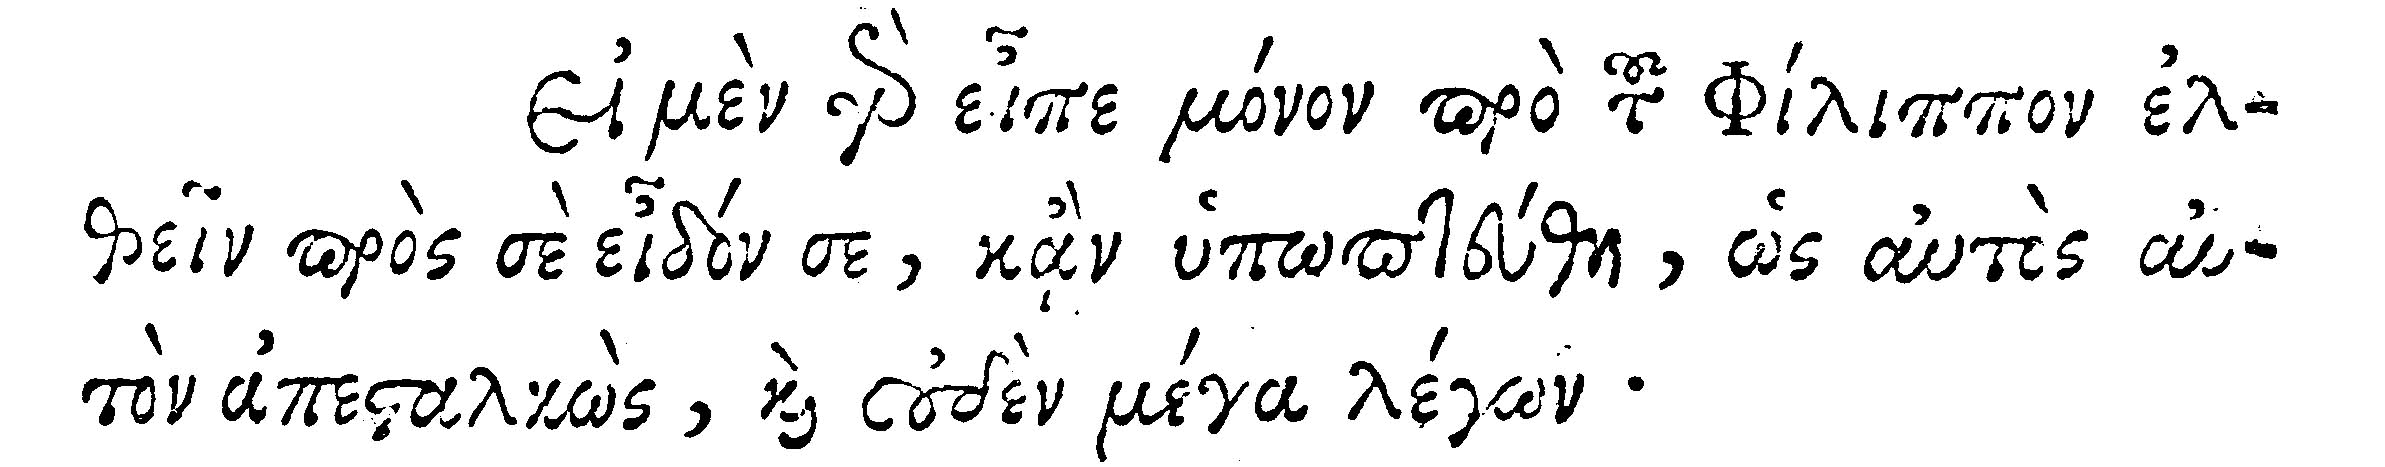 Εἰ μὲν γὰρ εἶπε μόνον πρὸ τοῦ Φίλιππον ἐλ-
θεῖν πρὸς σὲ εἶδόν σε, κᾂν ὑπωπτεύθη, ὡς αὐτὸς αὐ-
τὸν ἀπεσταλκὼς, καὶ οὐδὲν μέγα λέγων.